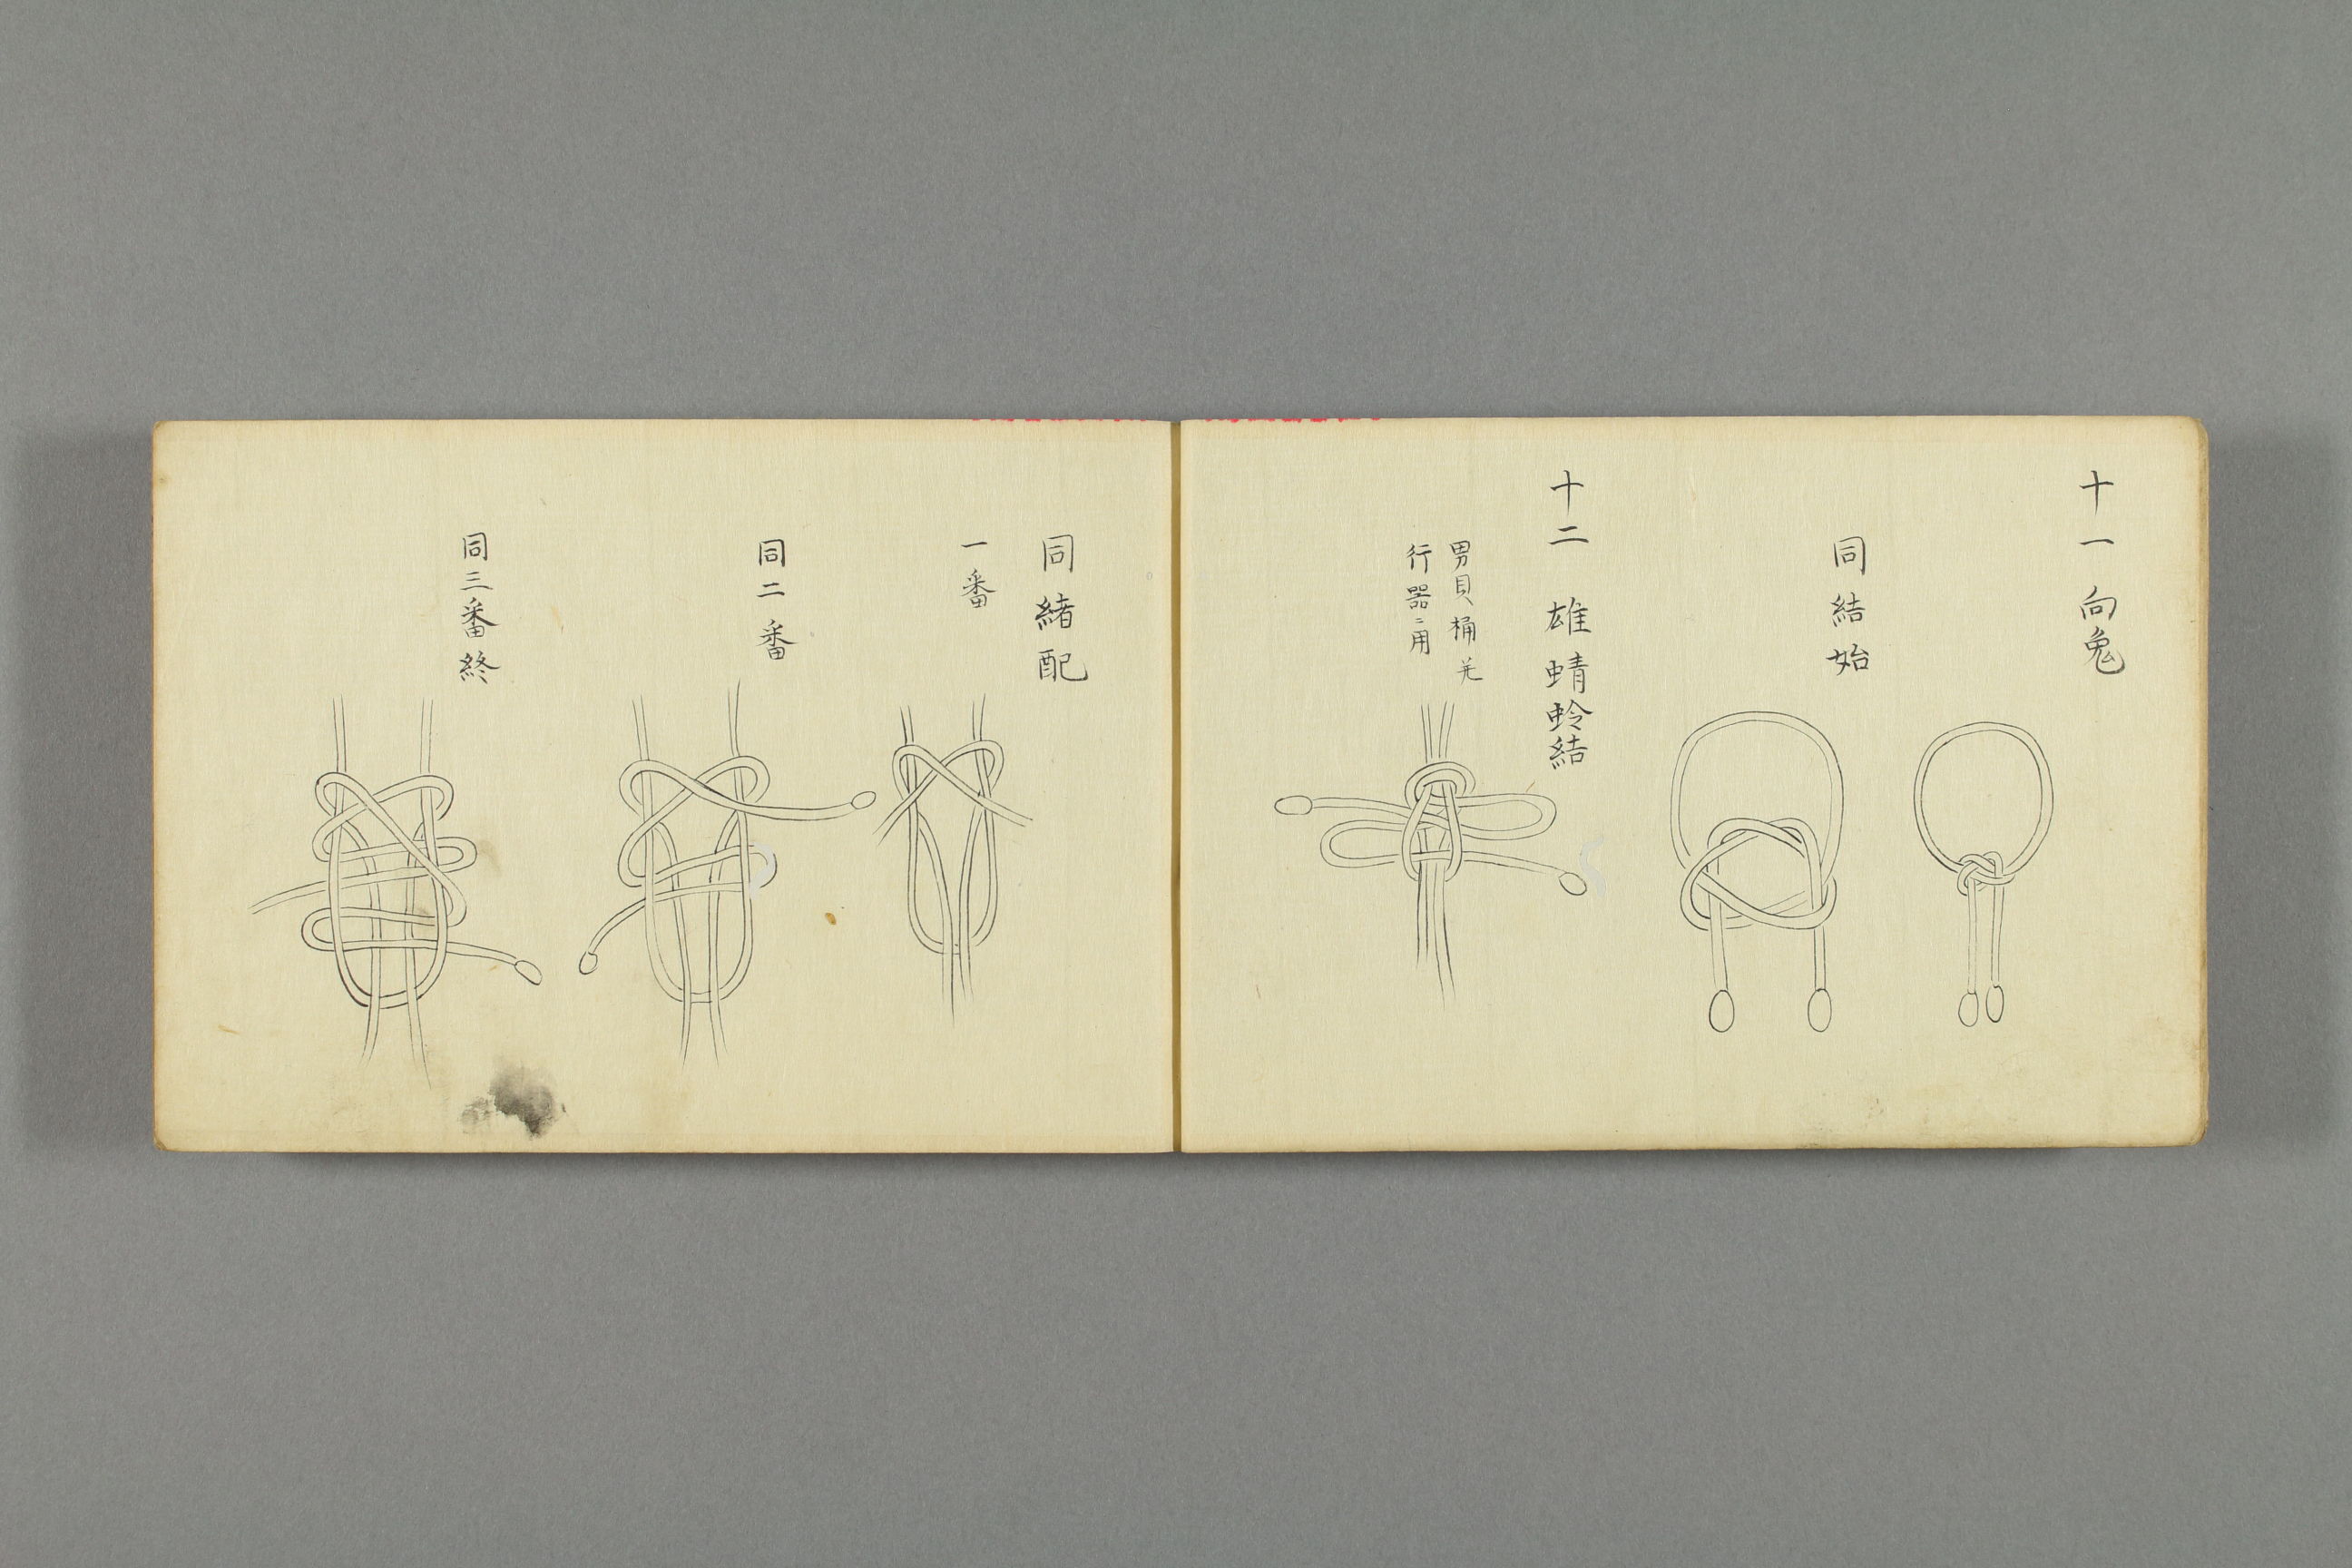 十一 向兔
同結始
十二 雄蜻蛉結
男貝桶并
行器ニ用
同緒配
一番
同二番
同三番終